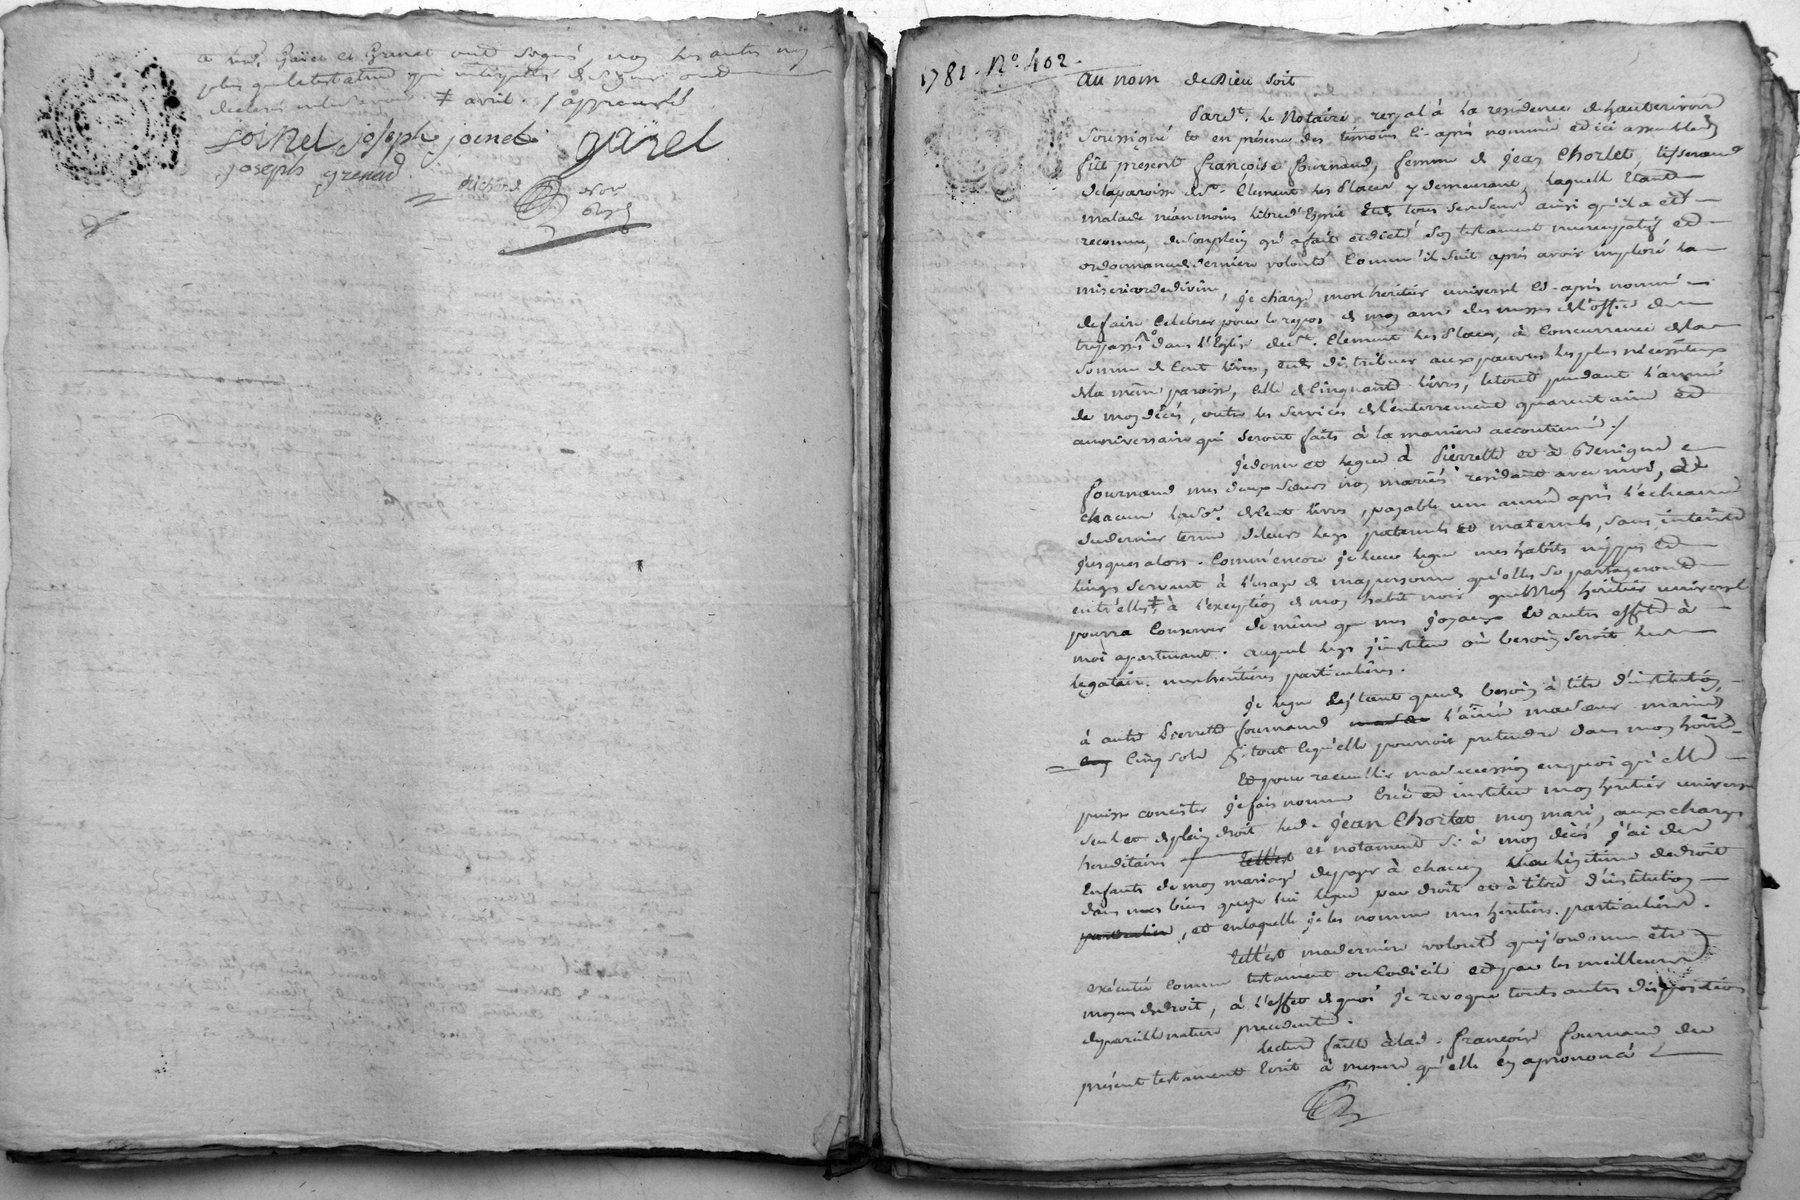 a lad. Garel et Grenat ont signé, non les autres non
plus que la testatrice qui interpellés de signer ont
declaré ne le savoir. ǂ avril. / approuvés
joinet joseph joinet garel
joseph grenad
1781. N° 402.
au nom de Dieu soit
Pardt. le Notaire royal à la residence de hauterivoire
Soussigné et en présence des témoins ci-après nommés et ici assemblés
fût present françoise fournand, femme de jean Chorlet, tisserand
de la paroisse de St. Clement les Places y demeurant, laquelle etant
malade néanmoins libre d'Esprit et de tous ses sens ainsi qu'il a eté
reconnu, de son plein gré a fait et dicté son testament nuncupatif et
ordonnance de derniere volonté comme il suit après avoir imploré la
misericorde divine, je charge mon heritier universel ci-après nommé
de faire celebrer pour le repos de mon ame des messes de l'office des
trepassés dans l'Eglise de St. Clement les Places, à concurrence de la
somme de cent livres, et de distribuer aux pauvres les plus nécessiteux
de la même paroisse, celle de cinquante livres, le tout pendant l'année
de mon décès, outre les services de l'enterrement quarantaine et
anniversaire qui seront faits à la maniere accoutumée /
je donne et legue à Pierrette et à Benigne
fournand mes deux soeurs non mariées residant avec moi, à
chacune la so. de cent livres, payable une année après l'echeance
du dernier terme de leurs legs paternels et maternels, sans intérêts
jusques alors. Comme encore je leur legue mes habits nippes et
linges servant à l'usage de ma personne qu'elles se partageront
entr'elles ǂ à l'exception de mon habit noir que mon héritier universel
pourra conserver de même que mes joyaux et autres effets à
moi apartenant. auquel legs j'institue où besoin seroit lesd.
legataires mes heritieres particulières.
je legue des tant que de besoin à titre d'institution
à autre Pierrette fournand l'ainée ma soeur mariée
cinq sols pr. tout ce qu'elle pourroit pretendre dans mon hoirie
Et pour recueillir ma succession en quoi qu'elle
puisse concister je fais nomme crée et institue mon heritier universel
seul et de plein droit led. jean Chorlet mon mari, aux charges
hereditaires et notament si à mon décès j'ai des
Enfants de mon mariage de payer à chacun la legitime de droit
dans mes biens que je lui legue par droit et à titre d'institution
particulier, et en laquelle je les nomme mes heritiers particuliers.
telle est ma derniere volonté que j'ordonne être
exécutée comme testament ou codicile et par les meilleurs
moyens de droit, à l'effet de quoi je revoque touts autres dispositions
de pareille nature precedente.
lecture faitte à lad. françoise fournand du
présent testament écrit à mesure qu'elle en a prononcé